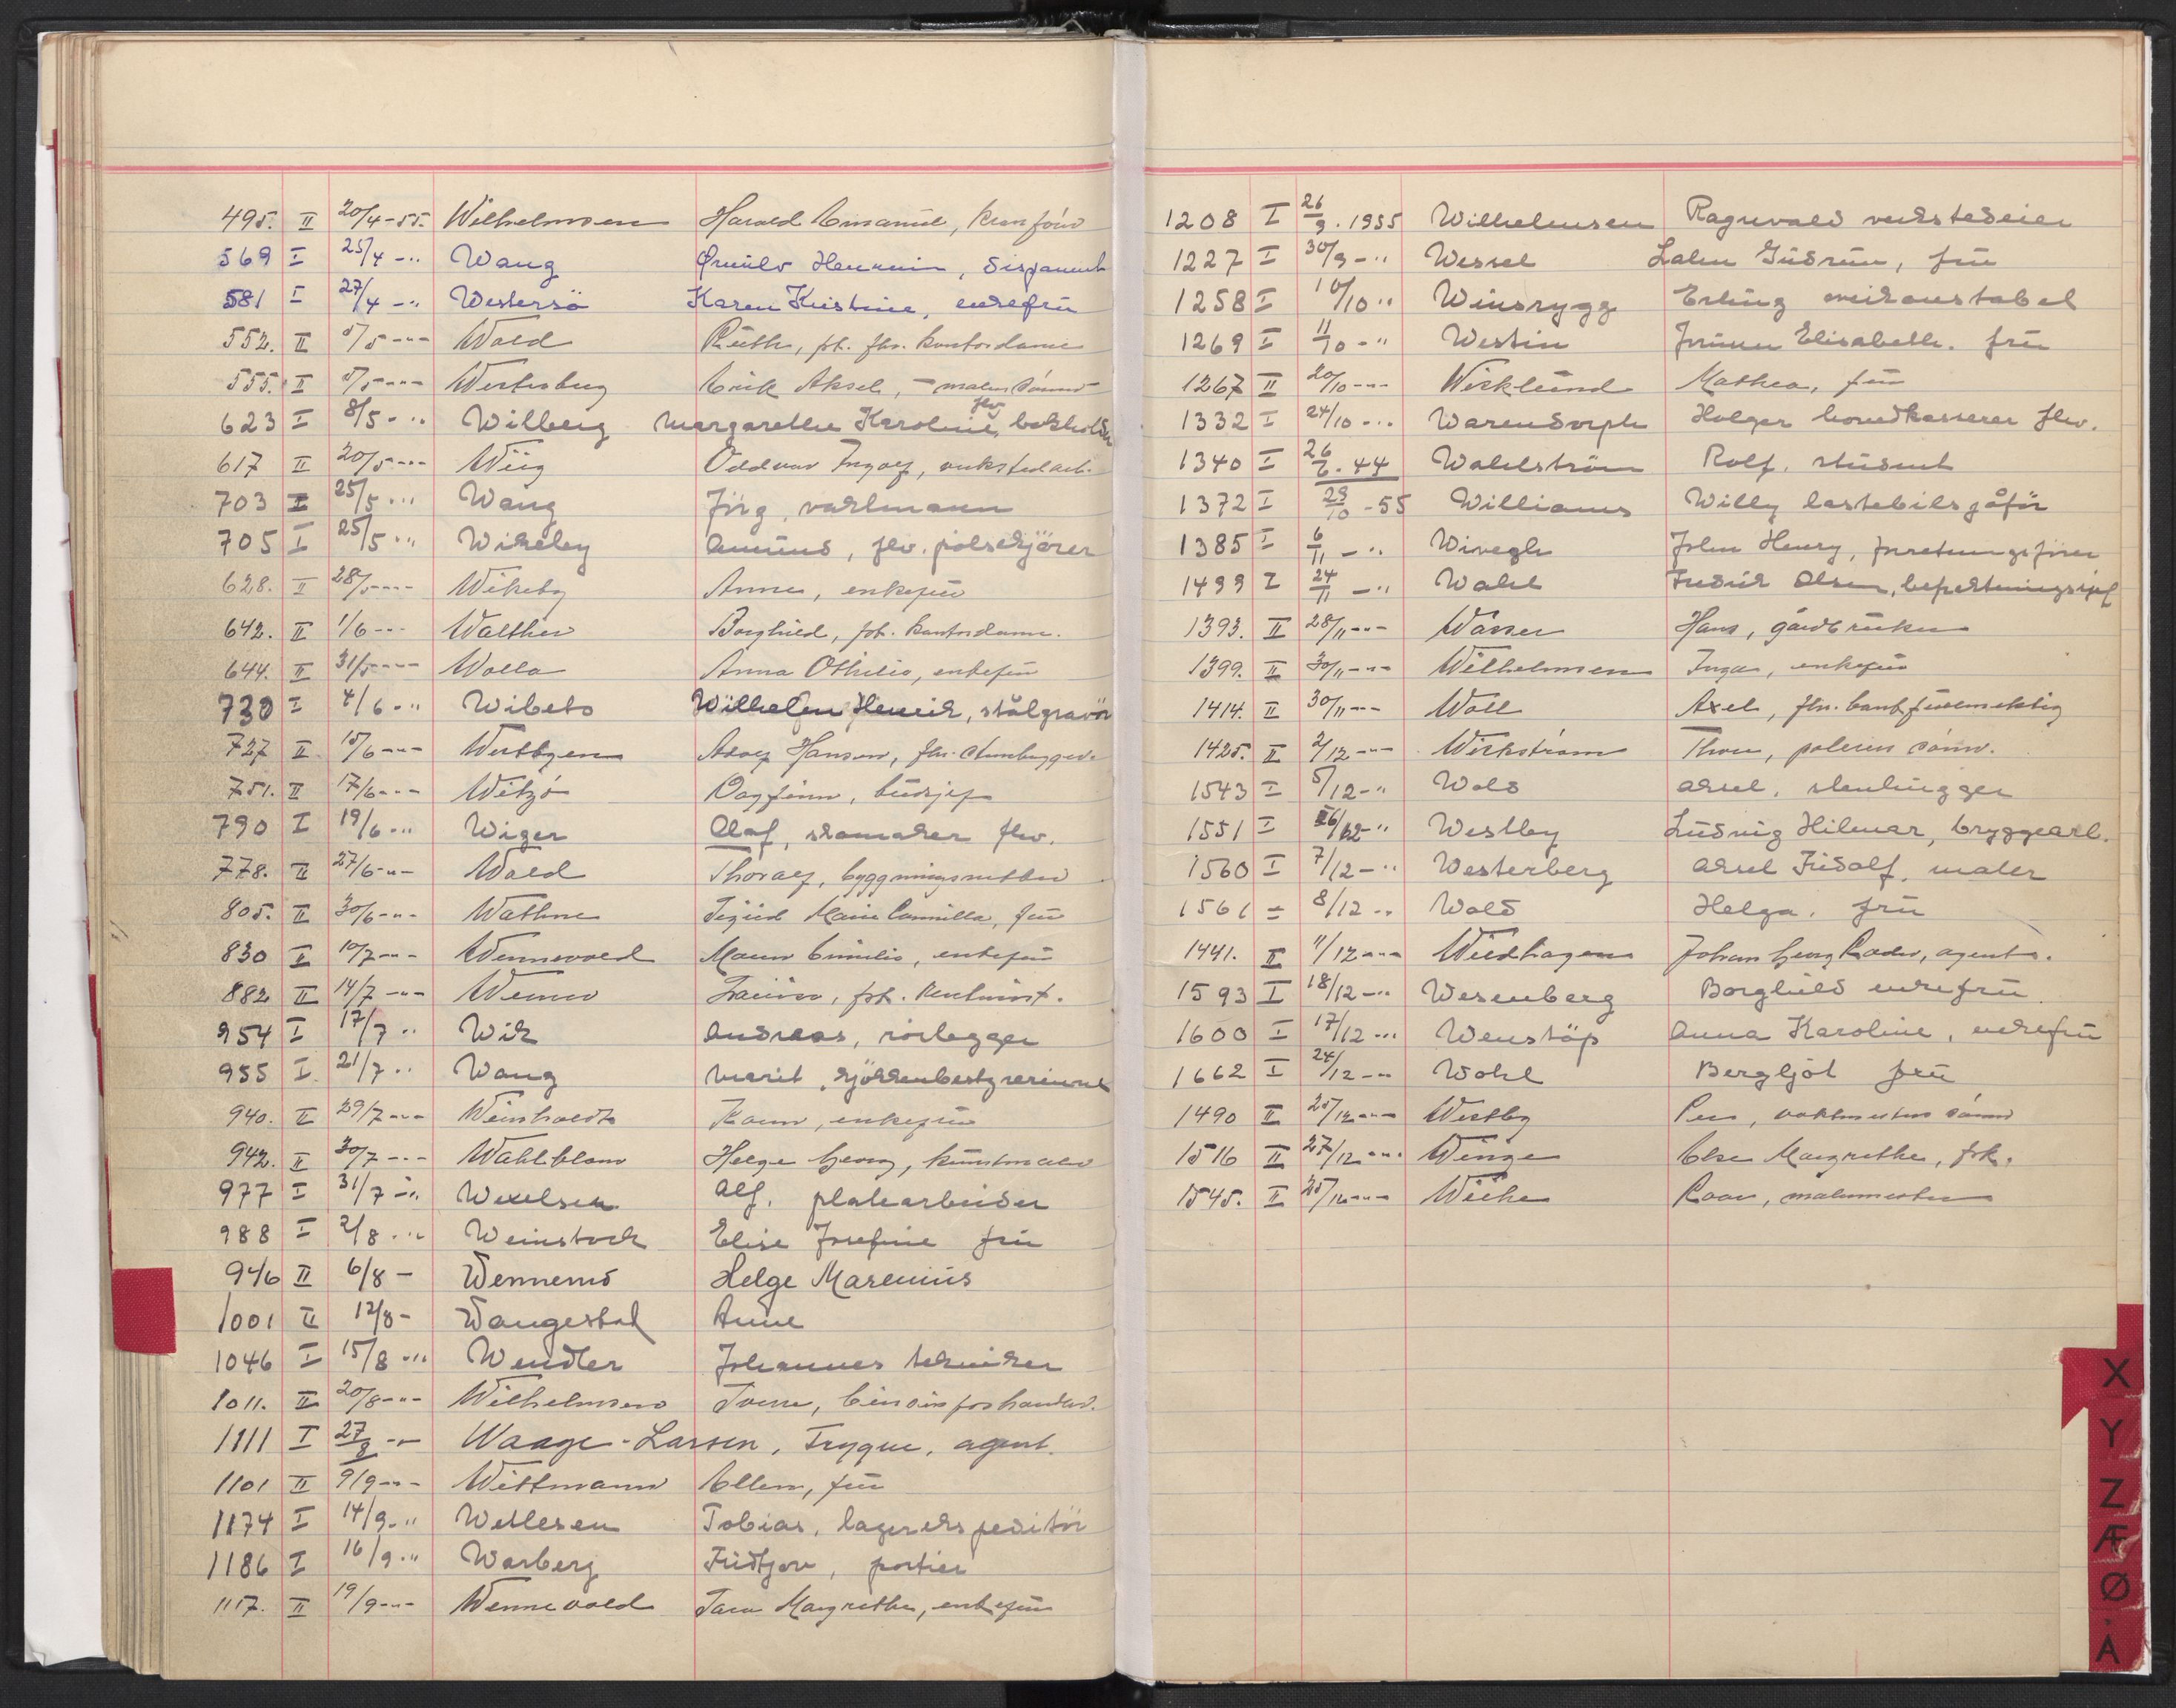 495. II 20/4-55. Wilhelmsen Harald Emanuel, kranfører
569 I 25/4 -" Wang Ørnulv Henrum, disponent
581 I 27/4 -" Westersö Karen Kristine, enkefrü
552. II 5/5 -"- Wold Rüth, frk. fhv. kontordame
555. II 5/5 -"- Westerberg Erik Aksel, - malers sønn -
623 I 8/5 -" Wilberg Margarethe Karoline, fhv bokholder
617 II 20/5 -"- Wiig Oddvar Ingolf, verkstedarb.
703 I 25/5 -" Wang Jörg, vaktmann
705 I 25/5 -" Wikeby Amünd, fhv. pölsekjörer
628. II 28/5 -"- Wikeby Anna, enkefrü
642. II 1/6 -"- Walther Borghild, frk. kontordame.
644. II 31/5 -"- Wolla Anna Othilie, enkefrü
730 I 4/6 -" Wibeto Wilhelm Henrik, stålgravör
727 II 15/6 -"- Westbyen Adolf Hansen, fhv. stenhugger.
751. II 17/6 -"- Witzø Dagfinn, büdsjef
790 I 19/6 -" Wiger Olaf, skomaker fhv.
778. II 27/6 -"- Wold Thoralf, bygningssnekker
805. II 30/6 -"- Wathne Sigrid Marie Camilla, frü
830 II 10/7 -"- Wennevold Maren Emilie, enkefrü
882 II 14/7 -"- Werner Laüra, frk.
954 I 17/7 " Wik Andreas, rörlegger
955 I 21/7 " Wang Marit, kjökkenbestyrerinne
940. II 29/7 -"- Weinholdt Karen, enkefrü
942. II 30/7 -"- Wahlblom Helge Georg, künstmaler
977 I 31/7 -" Wexelsen Alf, platearbeider
988 I 2/8 -" Weinstock Elise Josefine frü
946 II 6/8 - Wennemö Helge Marenius
1001 II 12/8 - Wangestad Anne
1046 I 15/8 -" Wendler Johannes tekniker
1011. II 20/8 -"- Wilhelmsen Sverre, bensinforhandler.
1111 I 27/8 -"- Waage-Larsen, Trygve, agent.
1101 II 9/9 -"- Wittmann Ellen, frü
1174 I 14/9 -" Wetlesen Tobias, lagerekspeditör
1186 I 16/9 -" Warberg Fridtjov, portier
1117. II 19/9 -"- Wennevold Sara Margrethe, enkefrü
1208 I 26/9. 1955 Wilhelmsen Ragnvald verkstedeier
1227 I 30/9 -" Wessel Lalen Güdrün, frü
1258 I 10/10 " Winsrygg Erling vei konstabel
1269 I 11/10 -" Westin Jenny Elisabeth. frü
1267 II 20/10 -"- Wicklünd Mathea, frü
1332 I 24/10 -" Warendorph Holger hovedkasserer fhv.
1340 I 26/6. 44 Wahlström Rolf, stüdent
1372 I 29/10 -55 Williams Willy lastebilsjåför
1385 I 6/11 -" Wivegh John Henry, forretningsfører
1499 I 24/11 -" Wahl Fredrik Olsen, befraktningssjef
1393. II 28/11 -"- Wårer Hans, gårdbrüker
1399. II 30/11 -"- Wilhelmsen Inga, enkefrü
1414. II 30/11 -"- Woll Axel, fhv. bankfüllmektig
1425. II 2/12 -"- Wickstrøm Thore, polerers sønn.
1543 I 5/12 -" Wold Aksel, stenhügger
1551 I 6/12 -" Westby Lüdvig Hilmar, bryggearb.
1560 I 7/12 -" Westerberg Aksel Fridolf, maler
1561 I 8/12 " Wold Helga, frü
1441. II 11/12 -"- Wiedhagen Johan Georg, agent.
1593 I 18/12 -" Wesenberg Borghild enkefrü
1600 I 17/12 -" Wenstöp Anna Karoline, enkefrü
1662 I 24/12 -" Wohl Bergljot frü
1490 II 25/12 -"- Westby Per, vaktmesters sønn
1516 II 27/12 -"- Winge Else Margrethe, frk.
1545. II 25/12 -"- Wiche Roar, malermester
X
Y
Z
Æ
Ø
Å